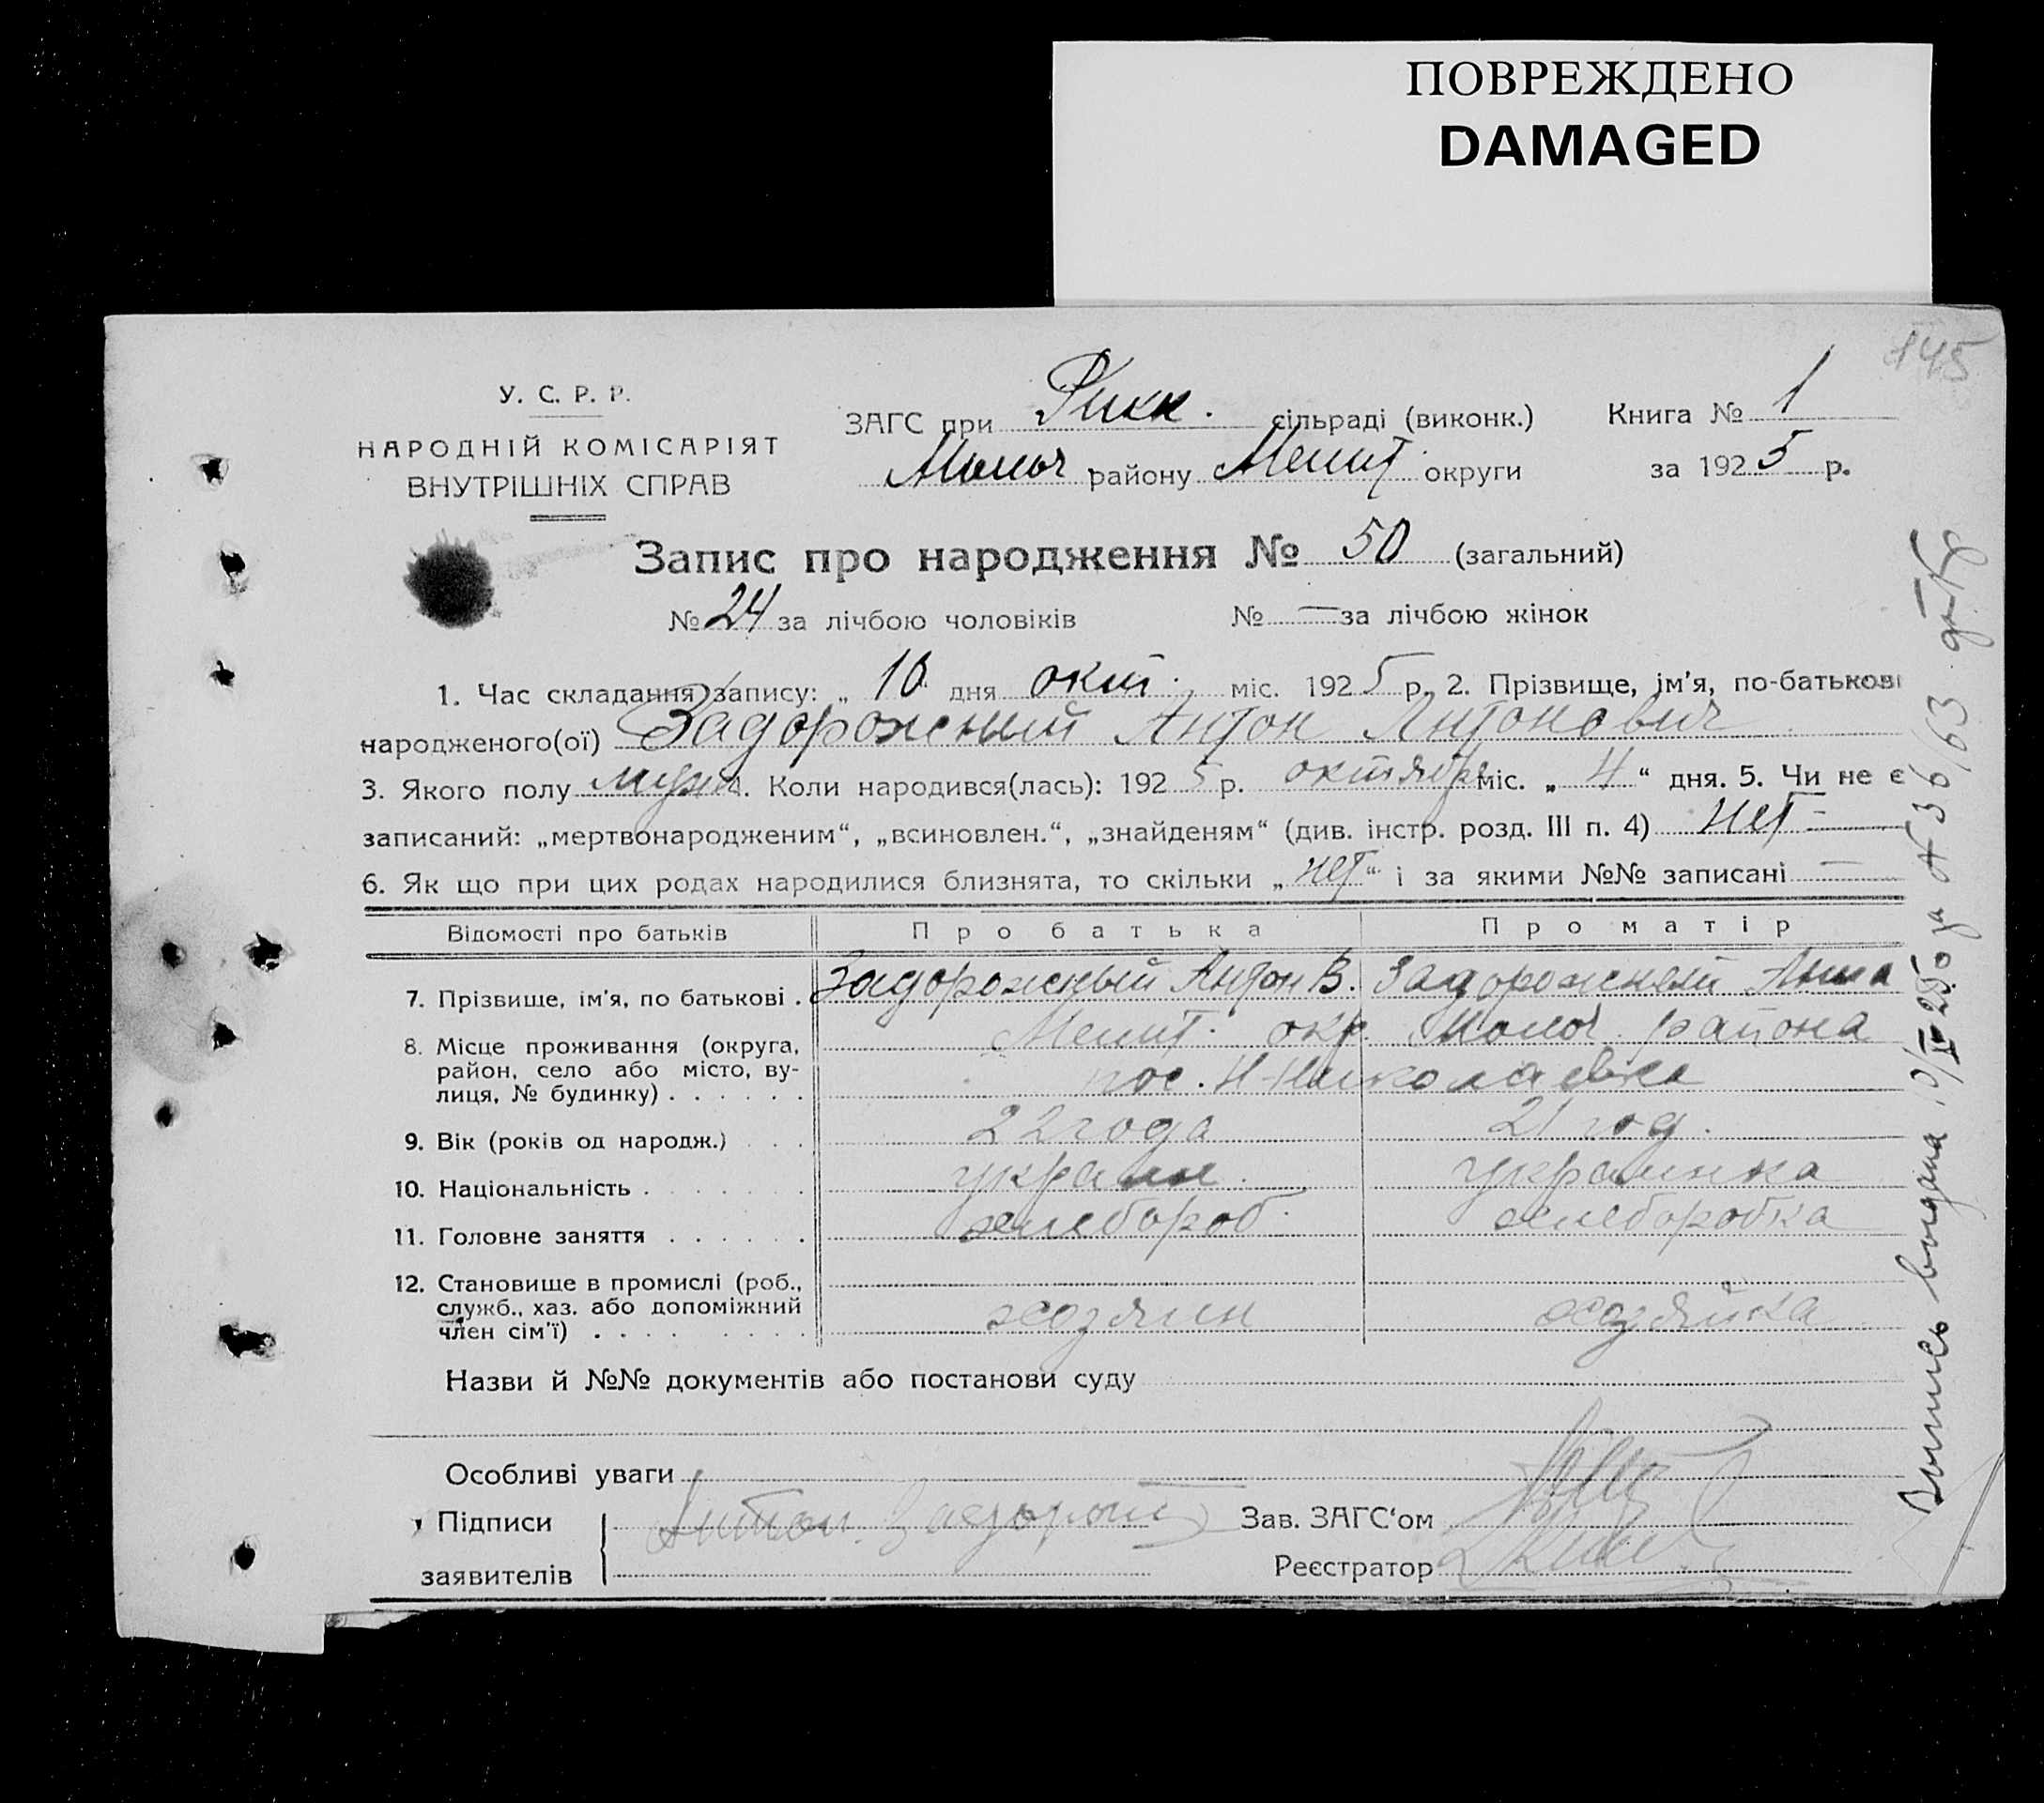 ПОВРЕЖДЕНО
DAMAGED
145
У. С. Р. Р.
НАРОДНІЙ КОМІСАРІЯТ
ВНУТРІШНІХ СПРАВ
ЗАГС при Рикк. сільраді (виконк.) Книга № 1
Молоч. району Мелит. округи за 1925 р.
Запис про народження № 50 (загальний)
№ 24 за лічбою чоловіків № — за лічбою жінок
1. Час складання запису: „ 10 дня окт. міс. 1925 р. 2. Прізвище, ім'я, по-батькові
народженого(ої) Задорожный Антон Антонович
3. Якого полу муж. 4. Коли народився(лась): 1925 р. октября міс. „ 4 “ дня. 5. Чи не є
записаний: „мертвонародженим“, „всиновлен.“, „знайденям“ (див. інстр. розд. III п. 4) нет —
6. Як що при цих родах народилися близнята, то скільки „ нет “ і за якими №№ записані —
Відомості про батьків Про батька Про матір
7. Прізвище, ім'я, по батькові . Задорожный Антон В. Задорожный Анна
8. Місце проживання (округа, Мелит. окр. Молоч. района
район, село або місто, ву-
лиця, № будинку) . . . . . . пос. Н-Николаевка
9. Вік (років од народж.) . . . 22 года 21 год.
10. Національність . . . . . . . украин. украинка
11. Головне заняття . . . . . . хлебороб. хлеборобка
12. Становище в промислі (роб.,
служб., хаз. або допоміжний
член сім'ї) . . . . . . . . . хозяин хозяйка
Назви й №№ документів або постанови суду
Особливі уваги
Підписи Антон Зав. ЗАГС‘ом
заявителів Реєстратор
Выпись выдана 10/X 25 г. за № 36/63